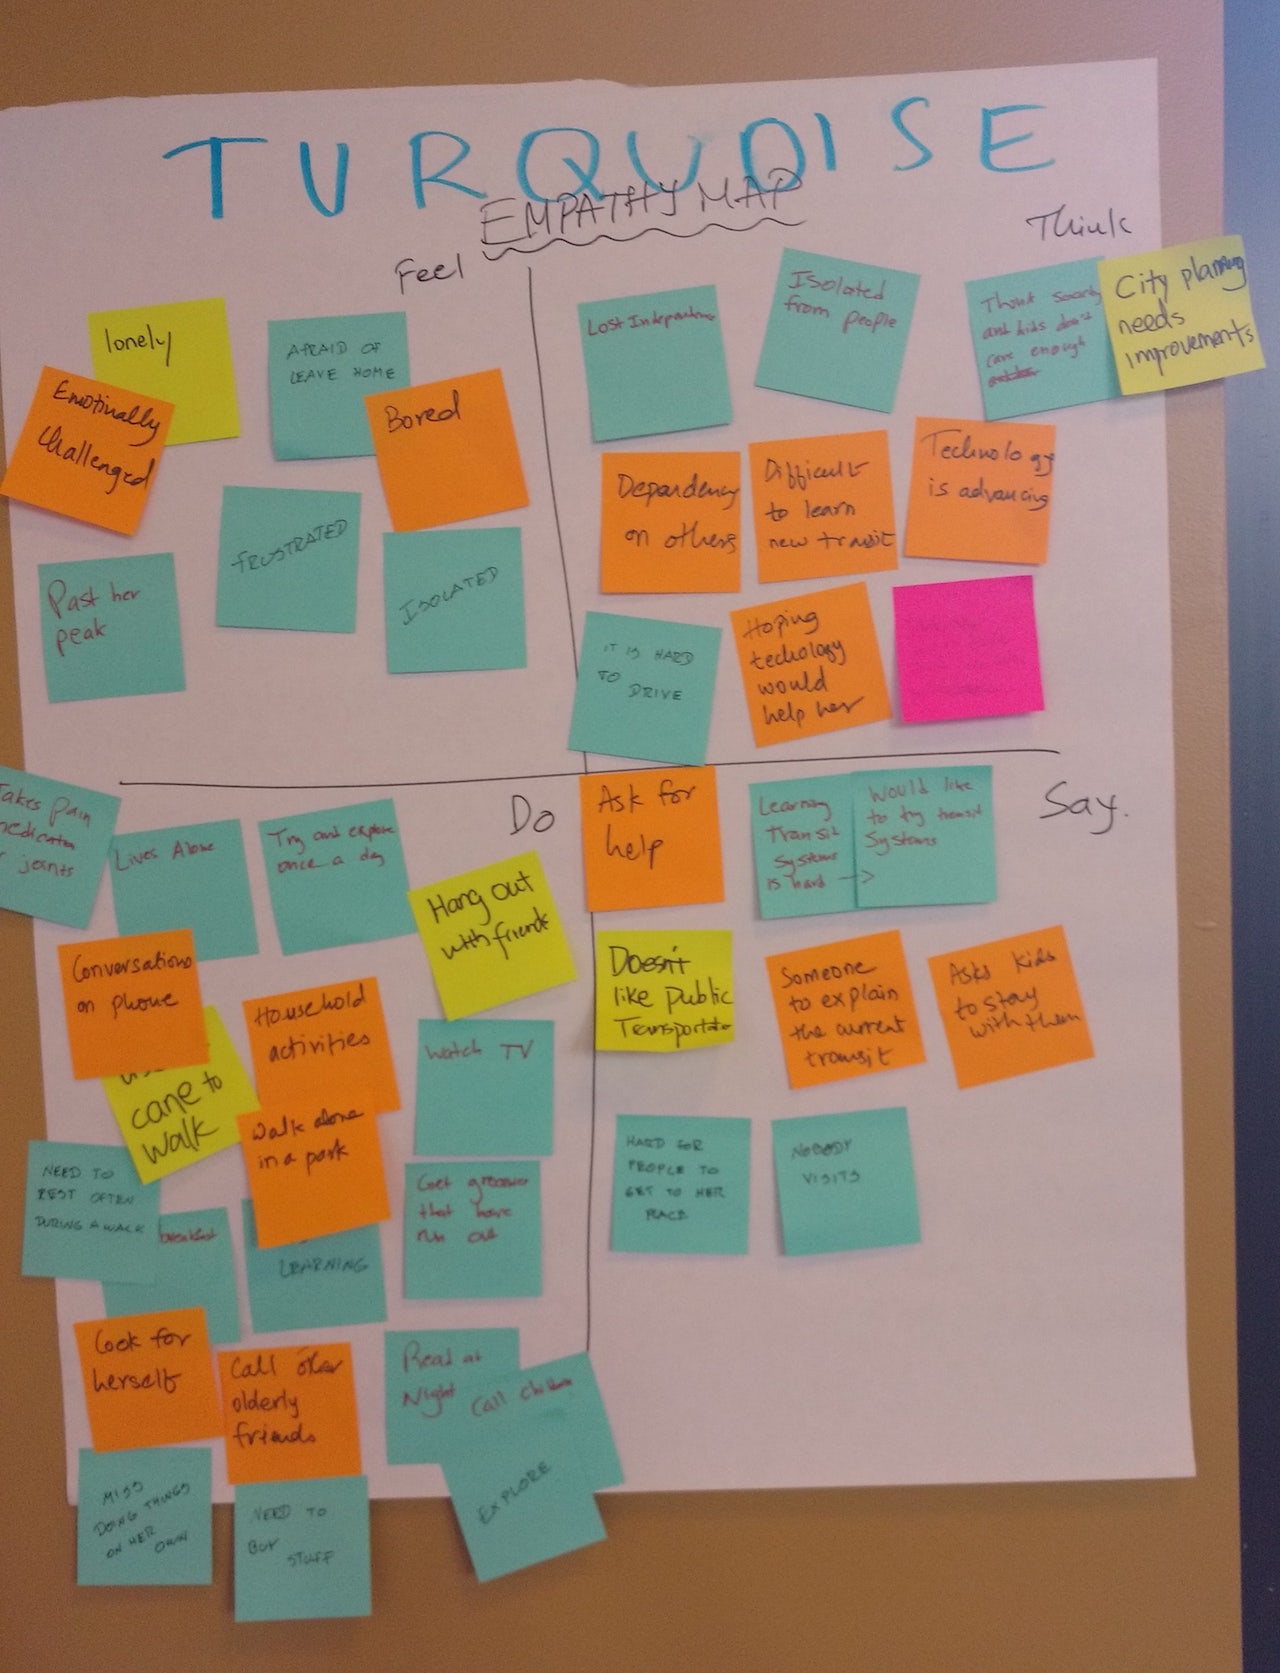 TURQUOISE
EMPATHY MAP
Feel
lonely
AFRAID OF
LEAVE HOME
Emotinally
Challenged
Bored
FRUSTRATED
ISOLATED
Past her
peak
Think
Lost Independence
Isolated
from people
Think Society
and kids don't
care enough
City planning
needs
improvements
Dependency
on others
Difficult
to learn
new transit
Technology
is advancing
IT IS HARD
TO DRIVE
Hoping
techology
would
help her
Do
Takes pain
medication
joints
Lives Alone
Try and explore
once a day
Hang out
with friends
Conversations
on phone
cane to
walk
Household
activities
Watch TV
Walk alone
in a park
NEED TO
REST OFTEN
DURING A WALK
breakfast
LEARNING
Get groceries
that have
run out
Cook for
herself
Call other
olderly
friends
Read at
Night
Call children
EXPLORE
MISS
DOING THINGS
ON HER
OWN
NEED TO
BUY
STUFF
Say.
Ask for
help
Learning
Transit
Systems
is hard →
Would like
to try transit
Systems
Doesn't
like Public
Transportation
Someone
to explain
the current
transit
Asks kids
to stay
with them
HARD FOR
PEOPLE TO
GET TO HER
PLACE
NOBODY
VISITS